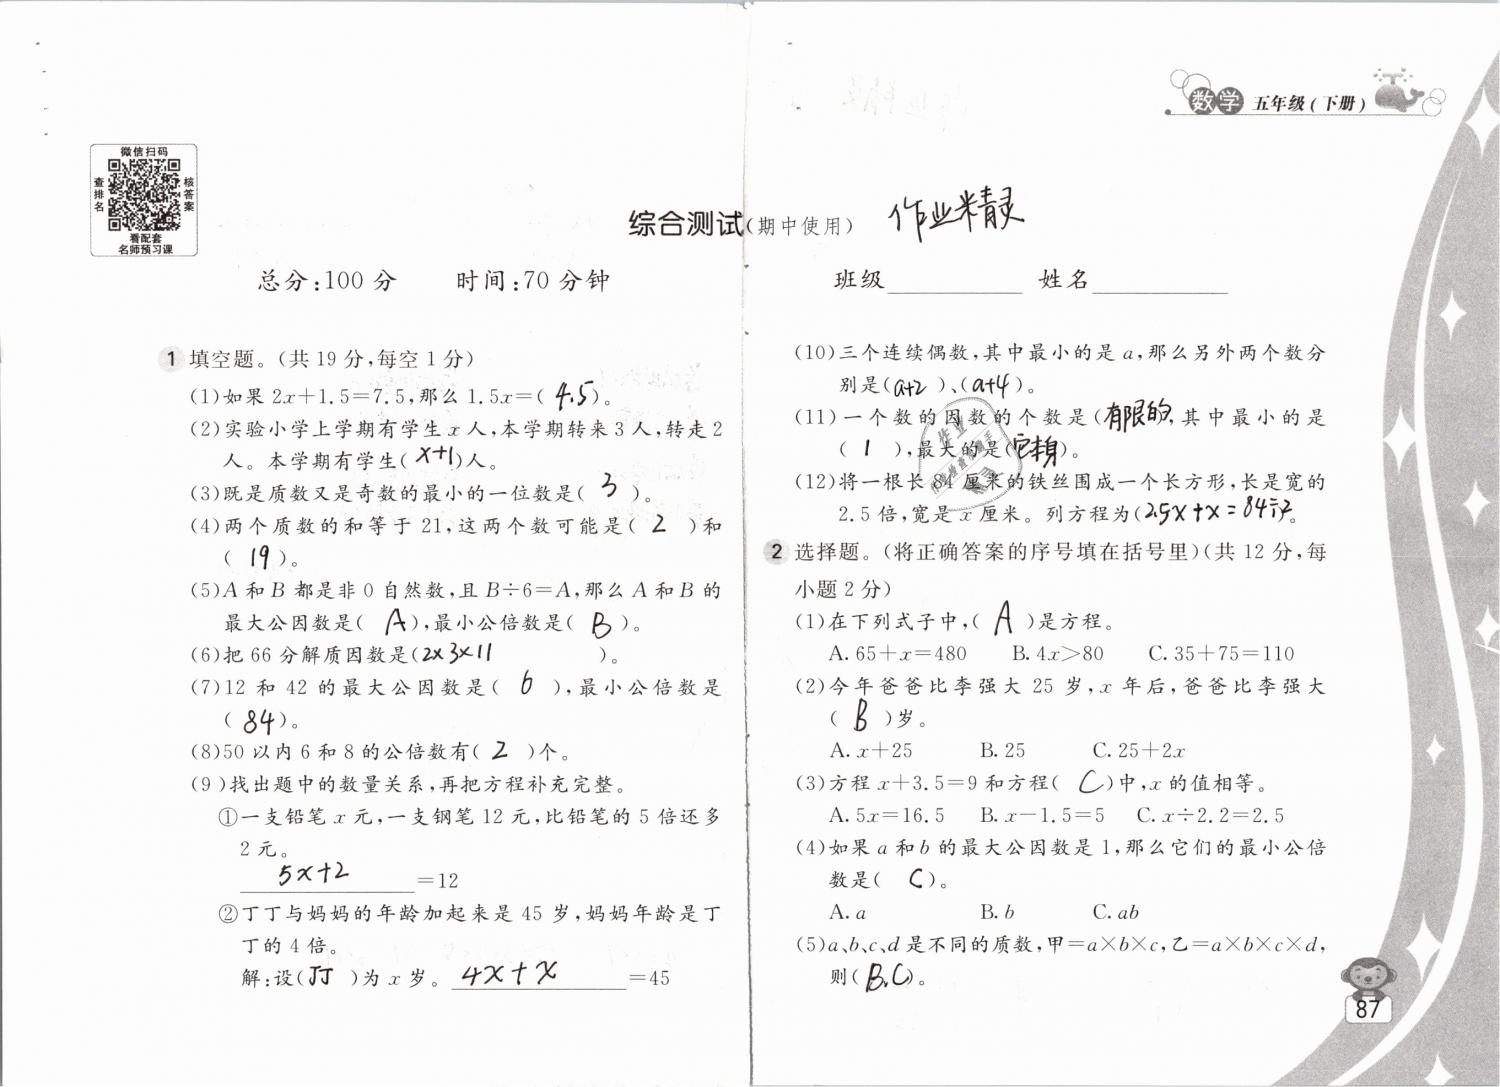 数学 五年级(下册)
微信扫码
查排名
核答案
看配套
名师预习课
综合测试(期中使用) 作业精灵
总分:100 分 时间:70 分钟 班级 姓名
1 填空题。(共 19 分,每空 1 分)
(1)如果 2x+1.5=7.5,那么 1.5x=( 4.5 )。
(2)实验小学上学期有学生 x 人,本学期转来 3 人,转走 2
人。本学期有学生( x+1 )人。
(3)既是质数又是奇数的最小的一位数是( 3 )。
(4)两个质数的和等于 21,这两个数可能是( 2 )和
( 19 )。
(5)A 和 B 都是非 0 自然数,且 B÷6=A,那么 A 和 B 的
最大公因数是( A ),最小公倍数是( B )。
(6)把 66 分解质因数是( 2×3×11 )。
(7)12 和 42 的最大公因数是( 6 ),最小公倍数是
( 84 )。
(8)50 以内 6 和 8 的公倍数有( 2 )个。
(9)找出题中的数量关系,再把方程补充完整。
①一支铅笔 x 元,一支钢笔 12 元,比铅笔的 5 倍还多
2 元。
5x+2 =12
②丁丁与妈妈的年龄加起来是 45 岁,妈妈年龄是丁
丁的 4 倍。
解:设(丁丁)为 x 岁。 4x+x =45
(10)三个连续偶数,其中最小的是 a,那么另外两个数分
别是( a+2 )、( a+4 )。
(11)一个数的因数的个数是(有限的),其中最小的是
( 1 ),最大的是(它本身)。
(12)将一根长 84 厘米的铁丝围成一个长方形,长是宽的
2.5 倍,宽是 x 厘米。列方程为( 2.5x+x=84÷2 )。
2 选择题。(将正确答案的序号填在括号里)(共 12 分,每
小题 2 分)
(1)在下列式子中,( A )是方程。
A. 65+x=480 B. 4x>80 C. 35+75=110
(2)今年爸爸比李强大 25 岁,x 年后,爸爸比李强大
( B )岁。
A. x+25 B. 25 C. 25+2x
(3)方程 x+3.5=9 和方程( C )中,x 的值相等。
A. 5x=16.5 B. x-1.5=5 C. x÷2.2=2.5
(4)如果 a 和 b 的最大公因数是 1,那么它们的最小公倍
数是( C )。
A. a B. b C. ab
(5)a、b、c、d 是不同的质数,甲=a×b×c,乙=a×b×c×d,
则( B、C )。
87